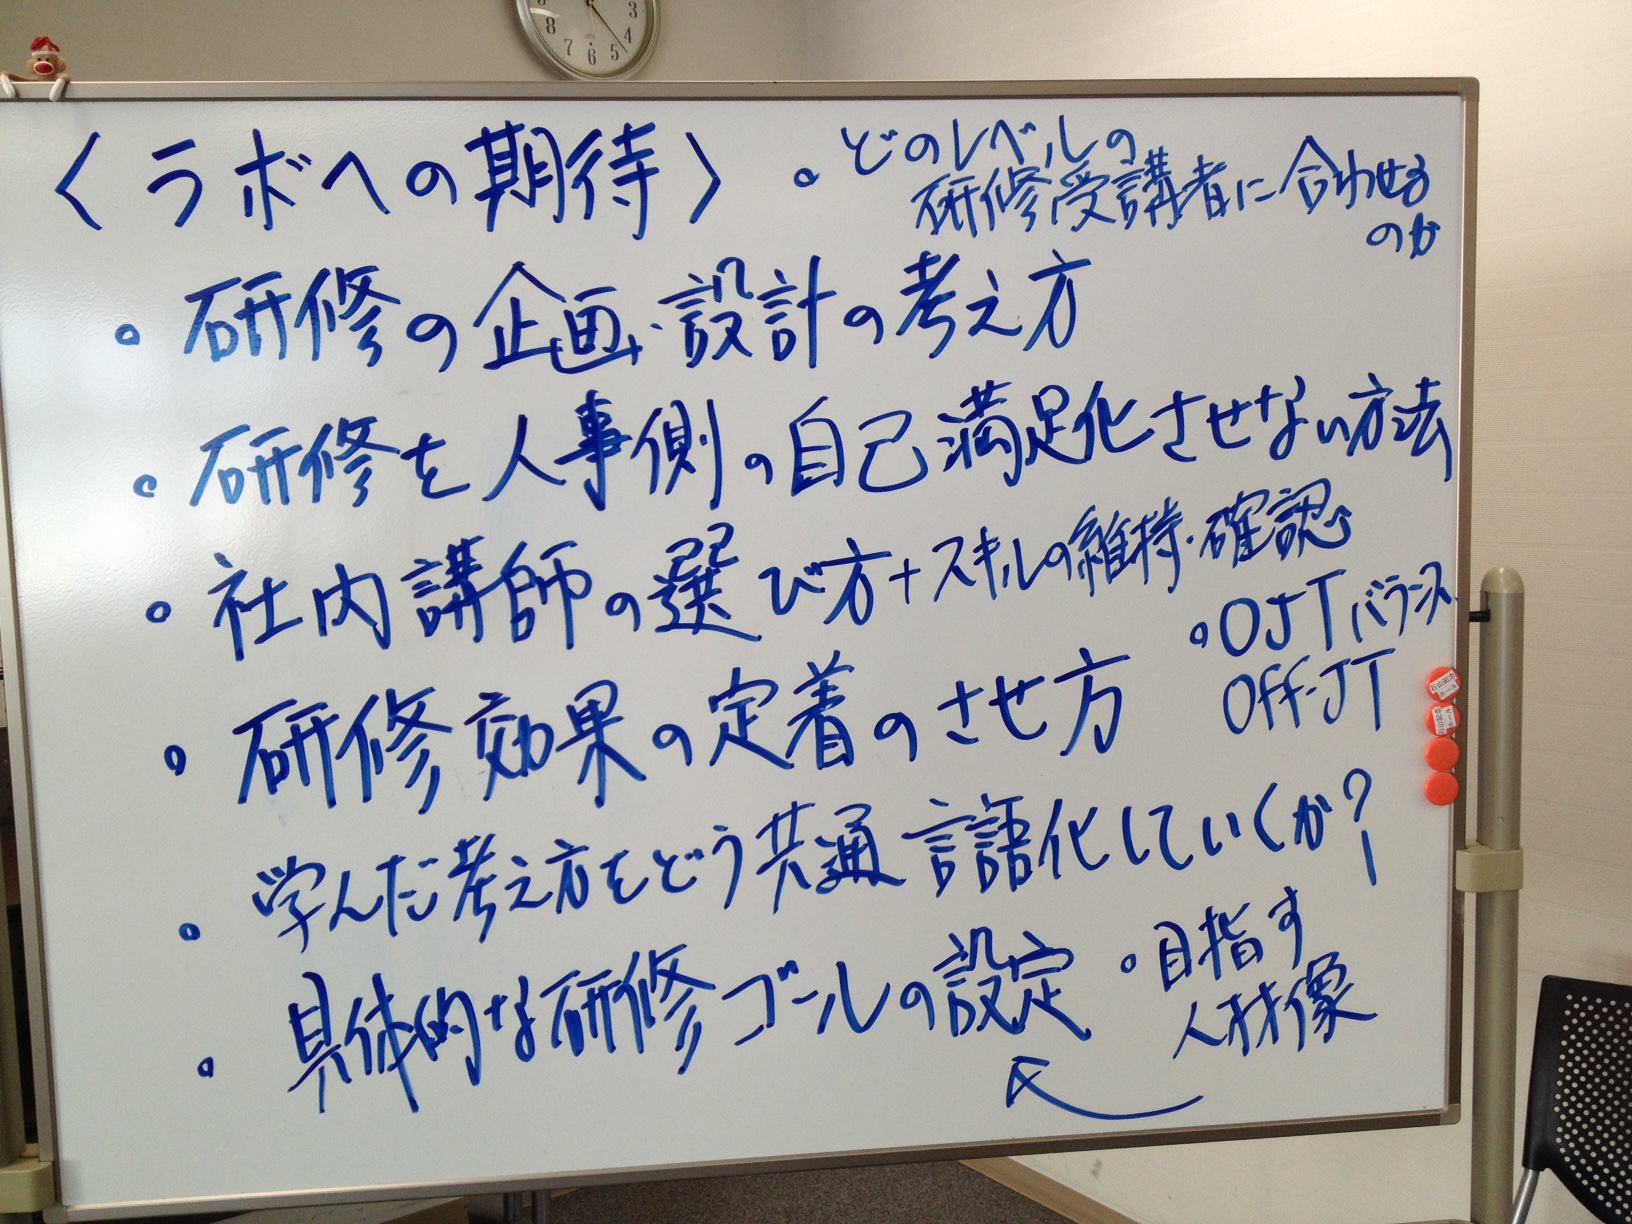 〈ラボへの期待〉
・どのレベルの
研修受講者に合わせる
のか
・研修の企画・設計の考え方
・研修を人事側の自己満足化させない方法
・社内講師の選び方+スキルの維持・確認
・OJTバランス
Off-JT
・研修効果の定着のさせ方
・学んだ考え方をどう共通言語化していくか?
・具体的な研修ゴールの設定
・目指す
人材像
8 7 6 5 4 3